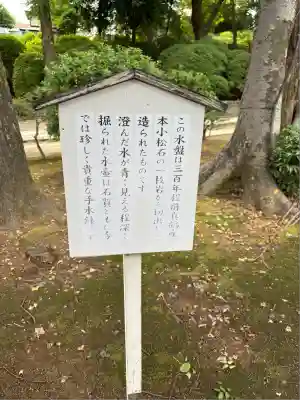 この水盤は三百年程前真鶴産
本小松石の一枚岩から切出し
造られたものです
澄んだ水が青く見える程深く
掘られた水壷は石質ともども
では珍しく貴重な手水鉢